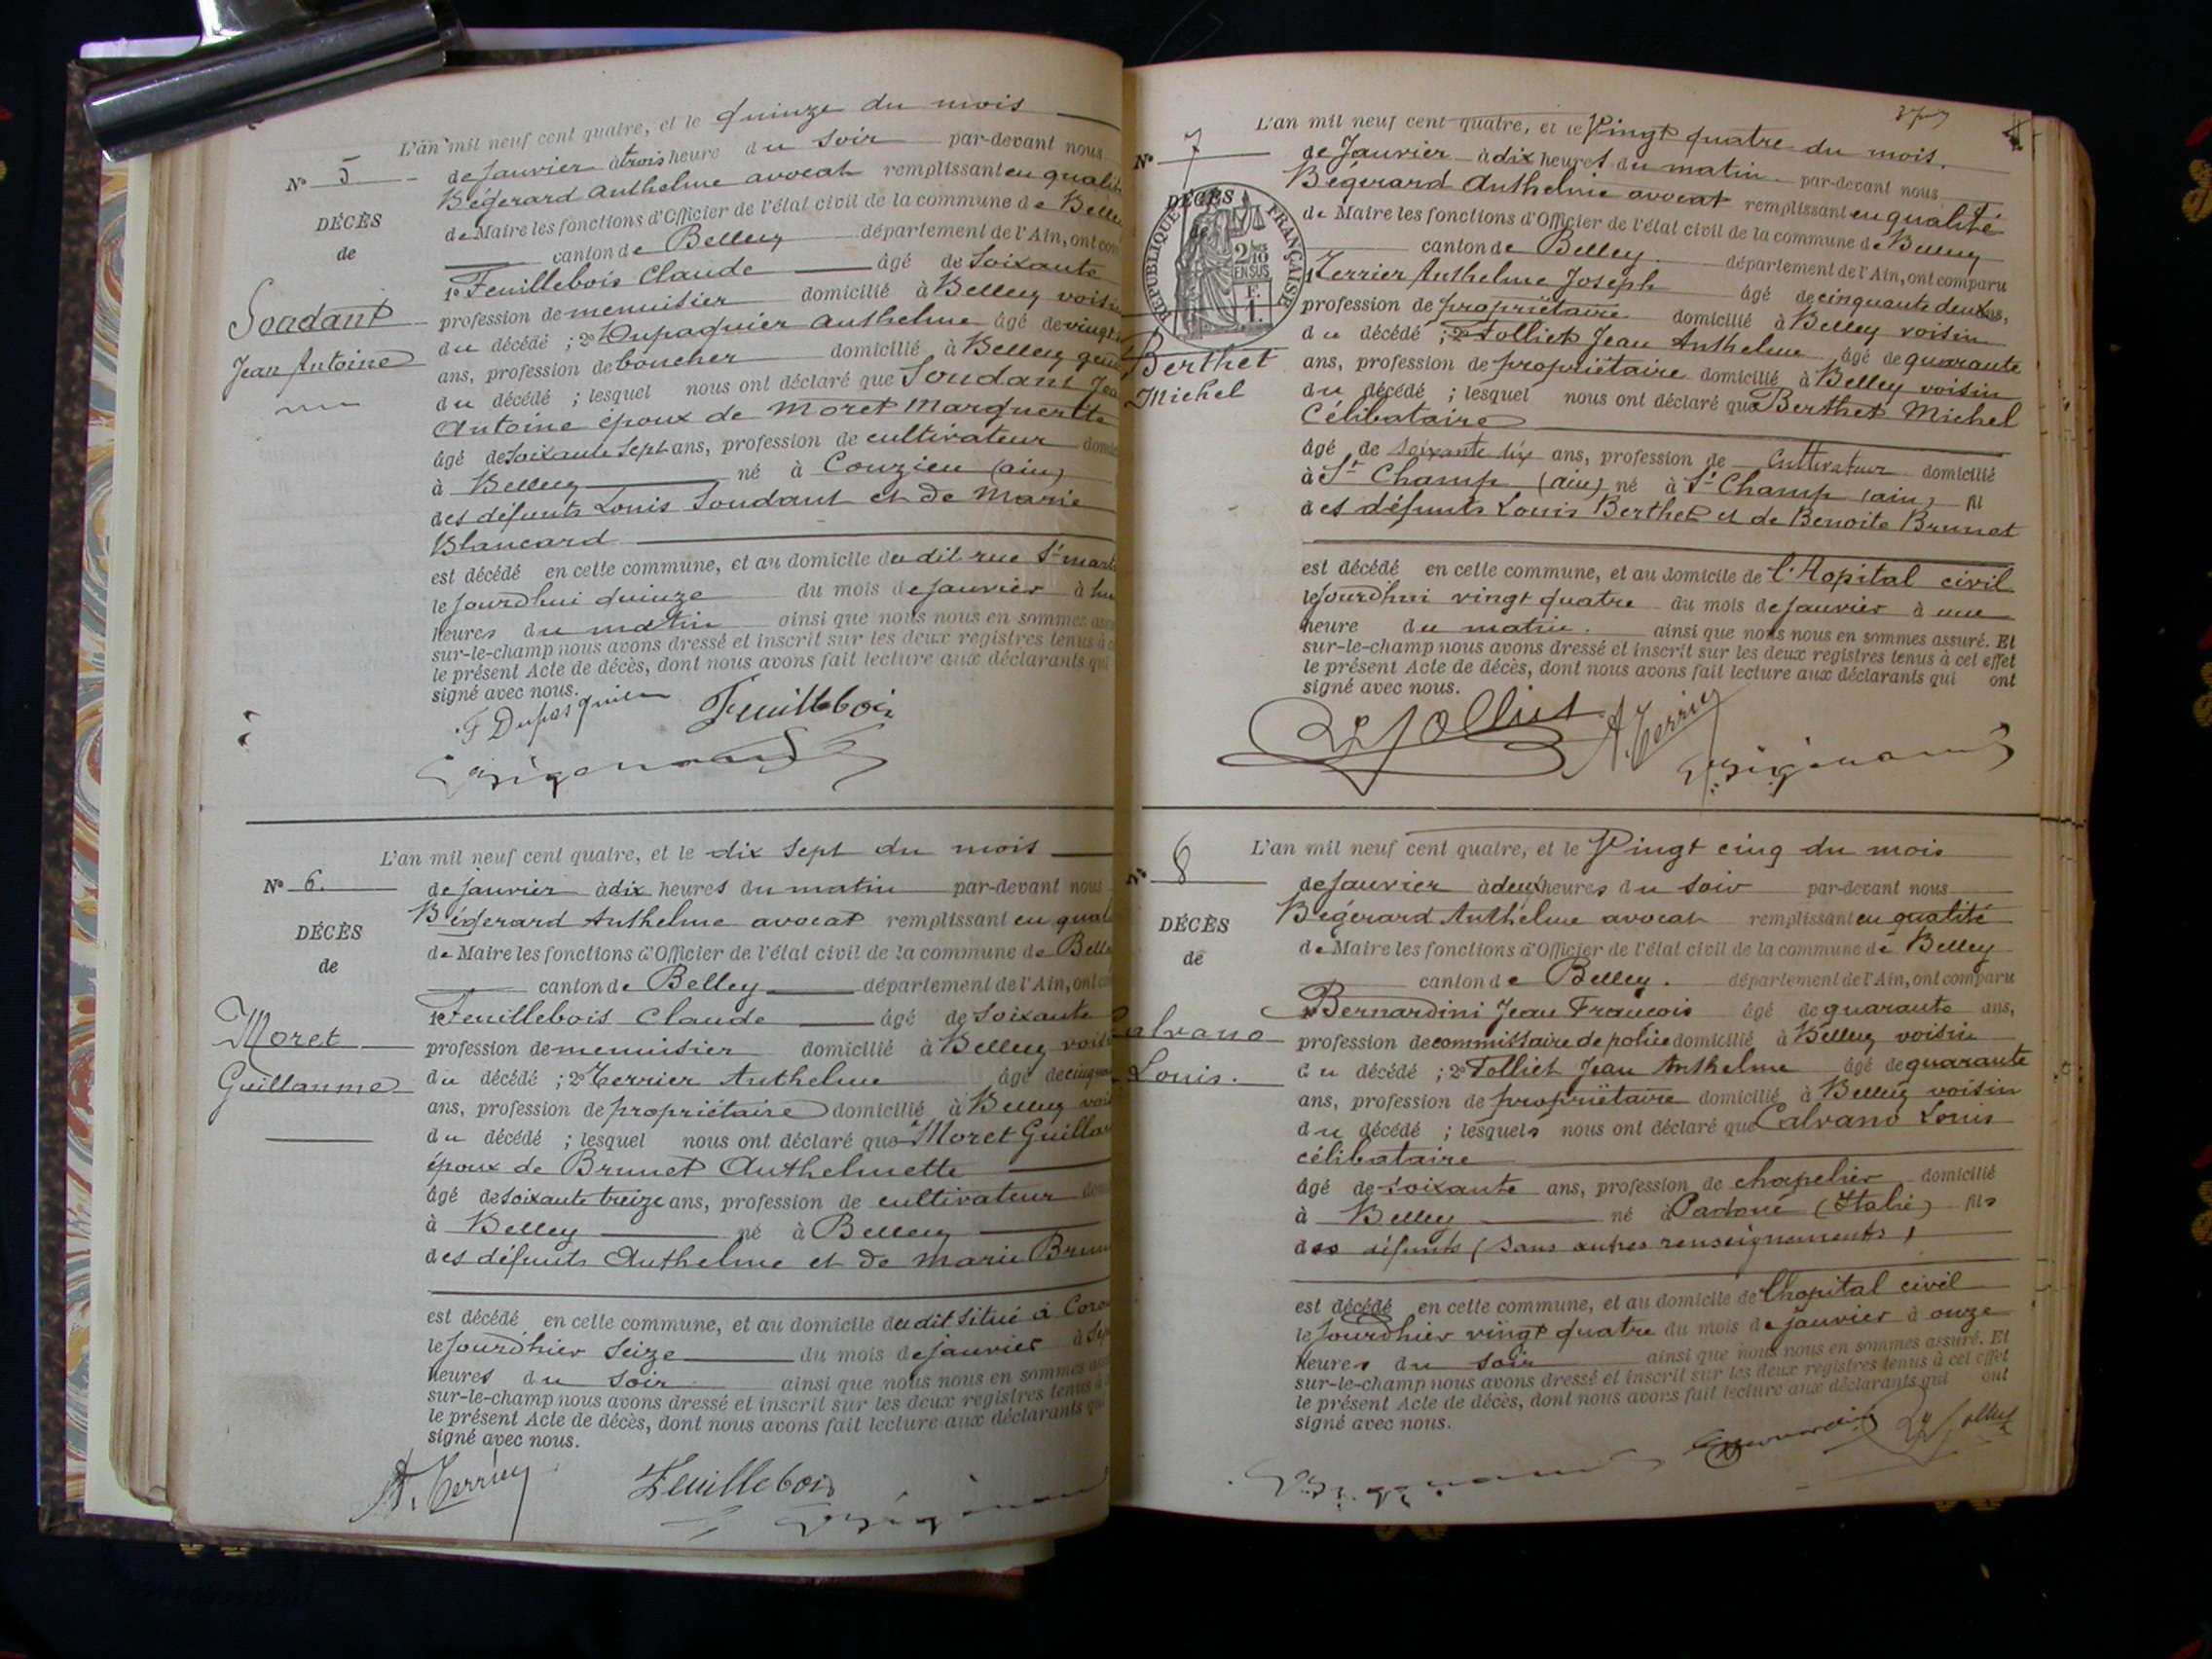 L'an mil neuf cent quatre, et le quinze du mois
N° 5
de Janvier à trois heure du soir par-devant nous
Bégerard Anthelme avocat remplissant en qualité
DÉCÈS
de Maire les fonctions d'Officier de l'état civil de la commune de Belley
de
canton de Belley département de l'Ain, ont com
1° Feuillebois Claude âgé de Soixante
Soudant
profession de menuisier domicilié à Belley voisin
Jean Antoine
du décédé ; 2° Dupasquier Anthelme âgé de vingt
ans, profession de boucher domicilié à Belley
du décédé ; lesquel nous ont déclaré que Soudant Jea
Antoine époux de Moret Marguerite
âgé de soixante sept ans, profession de cultivateur domici
à Belley né à Couzieu (ain)
des défunts Louis Soudant et de Marie
Blancard
est décédé en cette commune, et au domicile du dit rue St mart
le Jourd'hui quinze du mois de Janvier à hu
heures du matin ainsi que nous nous en sommes ass
sur-le-champ nous avons dressé et inscrit sur les deux registres tenus à c
le présent Acte de décès, dont nous avons fait lecture aux déclarants qui
signé avec nous.
F Dupasquier Feuillebois
Bégerard
L'an mil neuf cent quatre, et le dix sept du mois
N° 6.
de janvier à dix heures du matin par-devant nous
Bégerard Anthelme avocat remplissant en qual
DÉCÈS
de Maire les fonctions d'Officier de l'état civil de la commune de Belle
de
canton de Belley département de l'Ain, ont co
1° Feuillebois Claude âgé de Soixante
Moret
profession de menuisier domicilié à Belley voisi
Guillaume
du décédé ; 2° Terrier Anthelme âgé de cinquan
ans, profession de propriétaire domicilié à Belley voi
du décédé ; lesquel nous ont déclaré que Moret Guilla
époux de Brunet Anthelmette
âgé de soixante treize ans, profession de cultivateur dom
à Belley né à Belley
des défunts Anthelme et de Marie Brun
est décédé en cette commune, et au domicile du dit situé à Coro
le Jourd'hier Seize du mois de janvier à Sep
heures du soir ainsi que nous nous en sommes ass
sur-le-champ nous avons dressé et inscrit sur les deux registres tenus à
le présent Acte de décès, dont nous avons fait lecture aux déclarants qui
signé avec nous.
A. Terrier Feuillebois Bégerard
L'an mil neuf cent quatre, et le Vingt quatre du mois.
N° 7
de Janvier à dix heures du matin par-devant nous
Bégerard Anthelme avocat remplissant en qualité
DÉCÈS
RÉPUBLIQUE FRANÇAISE
2/10 EN SUS
F. 1.
de Maire les fonctions d'Officier de l'état civil de la commune de Belley
canton de Belley. département de l'Ain, ont comparu
1° Terrier Anthelme Joseph âgé de cinquante deux ans,
profession de propriétaire domicilié à Belley voisin
Berthet
du décédé ; 2° Folliet Jean Anthelme âgé de quarante
Michel
ans, profession de propriétaire domicilié à Belley voisin
du décédé ; lesquel nous ont déclaré que Berthet Michel
Célibataire
âgé de soixante dix ans, profession de Cultivateur domicilié
à St Champ (ain) né à St Champ (ain) fil
des défunts Louis Berthet et de Benoite Brunet
est décédé en cette commune, et au domicile de l'Hopital civil
le Jourd'hui vingt quatre du mois de janvier à une
heure du matin. ainsi que nous nous en sommes assuré. Et
sur-le-champ nous avons dressé et inscrit sur les deux registres tenus à cet effet
le présent Acte de décès, dont nous avons fait lecture aux déclarants qui ont
signé avec nous.
Folliet A. Terrier Bégerard
L'an mil neuf cent quatre, et le Vingt cinq du mois
N° 8
de Janvier à deux heures du soir par-devant nous
Bégerard Anthelme avocat remplissant en qualité
DÉCÈS
de Maire les fonctions d'Officier de l'état civil de la commune de Belley
de
canton de Belley. département de l'Ain, ont comparu
1° Bernardini Jean François âgé de quarante ans,
Calvano
profession de commissaire de police domicilié à Belley voisin
Louis.
du décédé ; 2° Folliet Jean Anthelme âgé de quarante
ans, profession de propriétaire domicilié à Belley voisin
du décédé ; lesquels nous ont déclaré que Calvano Louis
célibataire
âgé de soixante ans, profession de chapelier domicilié
à Belley né à Padoue (Italie) fils
des défunts (sans autres renseignements)
est décédé en cette commune, et au domicile de l'hopital civil
le Jourd'hier vingt quatre du mois de janvier à onze
heures du soir ainsi que nous nous en sommes assuré. Et
sur-le-champ nous avons dressé et inscrit sur les deux registres tenus à cet effet
le présent Acte de décès, dont nous avons fait lecture aux déclarants qui ont
signé avec nous.
Bégerard Bernardini Folliet